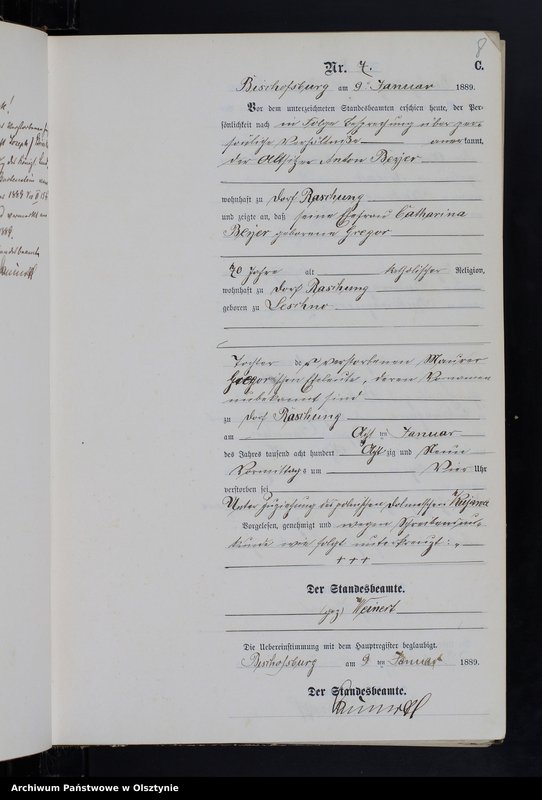 8
Nr. 7. C.
Bischofsburg am 9 Januar 1889.
Vor dem unterzeichneten Standesbeamten erschien heute, der Per-
sönlichkeit nach in Folge Besprechung über per-
sönliche Verhältniße anerkannt,
der Altsitzer Anton Beyer
wohnhaft zu Dorf Raschung
und zeigte an, daß seine Ehefrau Catharina
Beyer geborene Gregor
70 Jahre alt katholischer Religion,
wohnhaft zu Dorf Raschung
geboren zu Leschno
Tochter der verstorbenen Maurer
Gregor'schen Eheleute, deren Vornamen
unbekannt sind
zu Dorf Raschung
am Acht ten Januar
des Jahres tausend acht hundert Acht zig und Neun
Vormittags um Vier Uhr
verstorben sei
Unter Zuziehung des polnischen Dolmetschers Kujawa
Vorgelesen, genehmigt und wegen Schreibensun-
kunde wie folgt unterkreuzt:
+++
Der Standesbeamte.
(gez) Weinert
Die Uebereinstimmung mit dem Hauptregister beglaubigt.
Bischofsburg am 9 ten Januar 1889.
Der Standesbeamte.
Archiwum Państwowe w Olsztynie